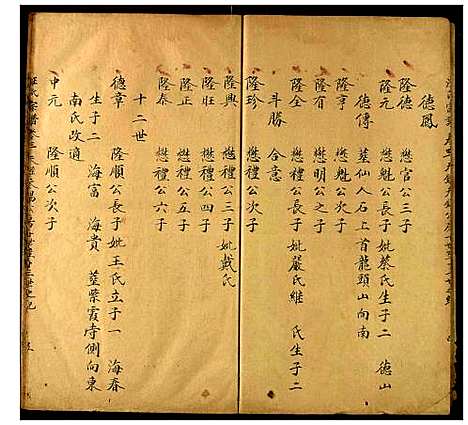 德鳳
隆德 懋官公三子
隆元 懋魁公長子妣蔡氏生子二 德山
德傳 塟仙人石上首龍頭山向南
隆亨 懋魁公次子
隆有 懋明公之子
隆全 懋禮公長子妣嚴氏維 氏生子二
斗勝 合意
隆珍 懋禮公次子
隆興 懋禮公三子妣戴氏
隆旺 懋禮公四子
隆正 懋禮公五子
隆泰 懋禮公六子
十二世
德章 隆順公長子妣王氏立子一 海春
生子二 海富 海貴 塟紫霞寺側向東
南氏改適
中元 隆順公次子